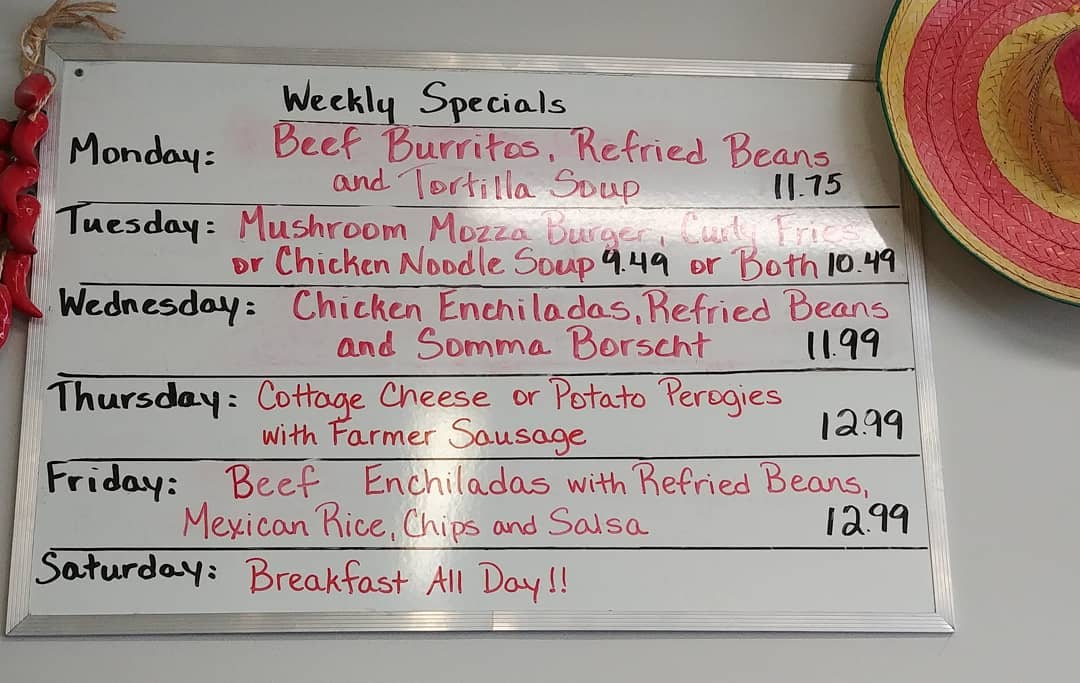 Weekly Specials
Monday: Beef Burritos, Refried Beans
and Tortilla Soup 11.75
Tuesday: Mushroom Mozza Burger, Curly Fries
or Chicken Noodle Soup 9.49 or Both 10.49
Wednesday: Chicken Enchiladas, Refried Beans
and Somma Borscht 11.99
Thursday: Cottage Cheese or Potato Perogies
with Farmer Sausage 12.99
Friday: Beef Enchiladas with Refried Beans,
Mexican Rice, Chips and Salsa 12.99
Saturday: Breakfast All Day!!